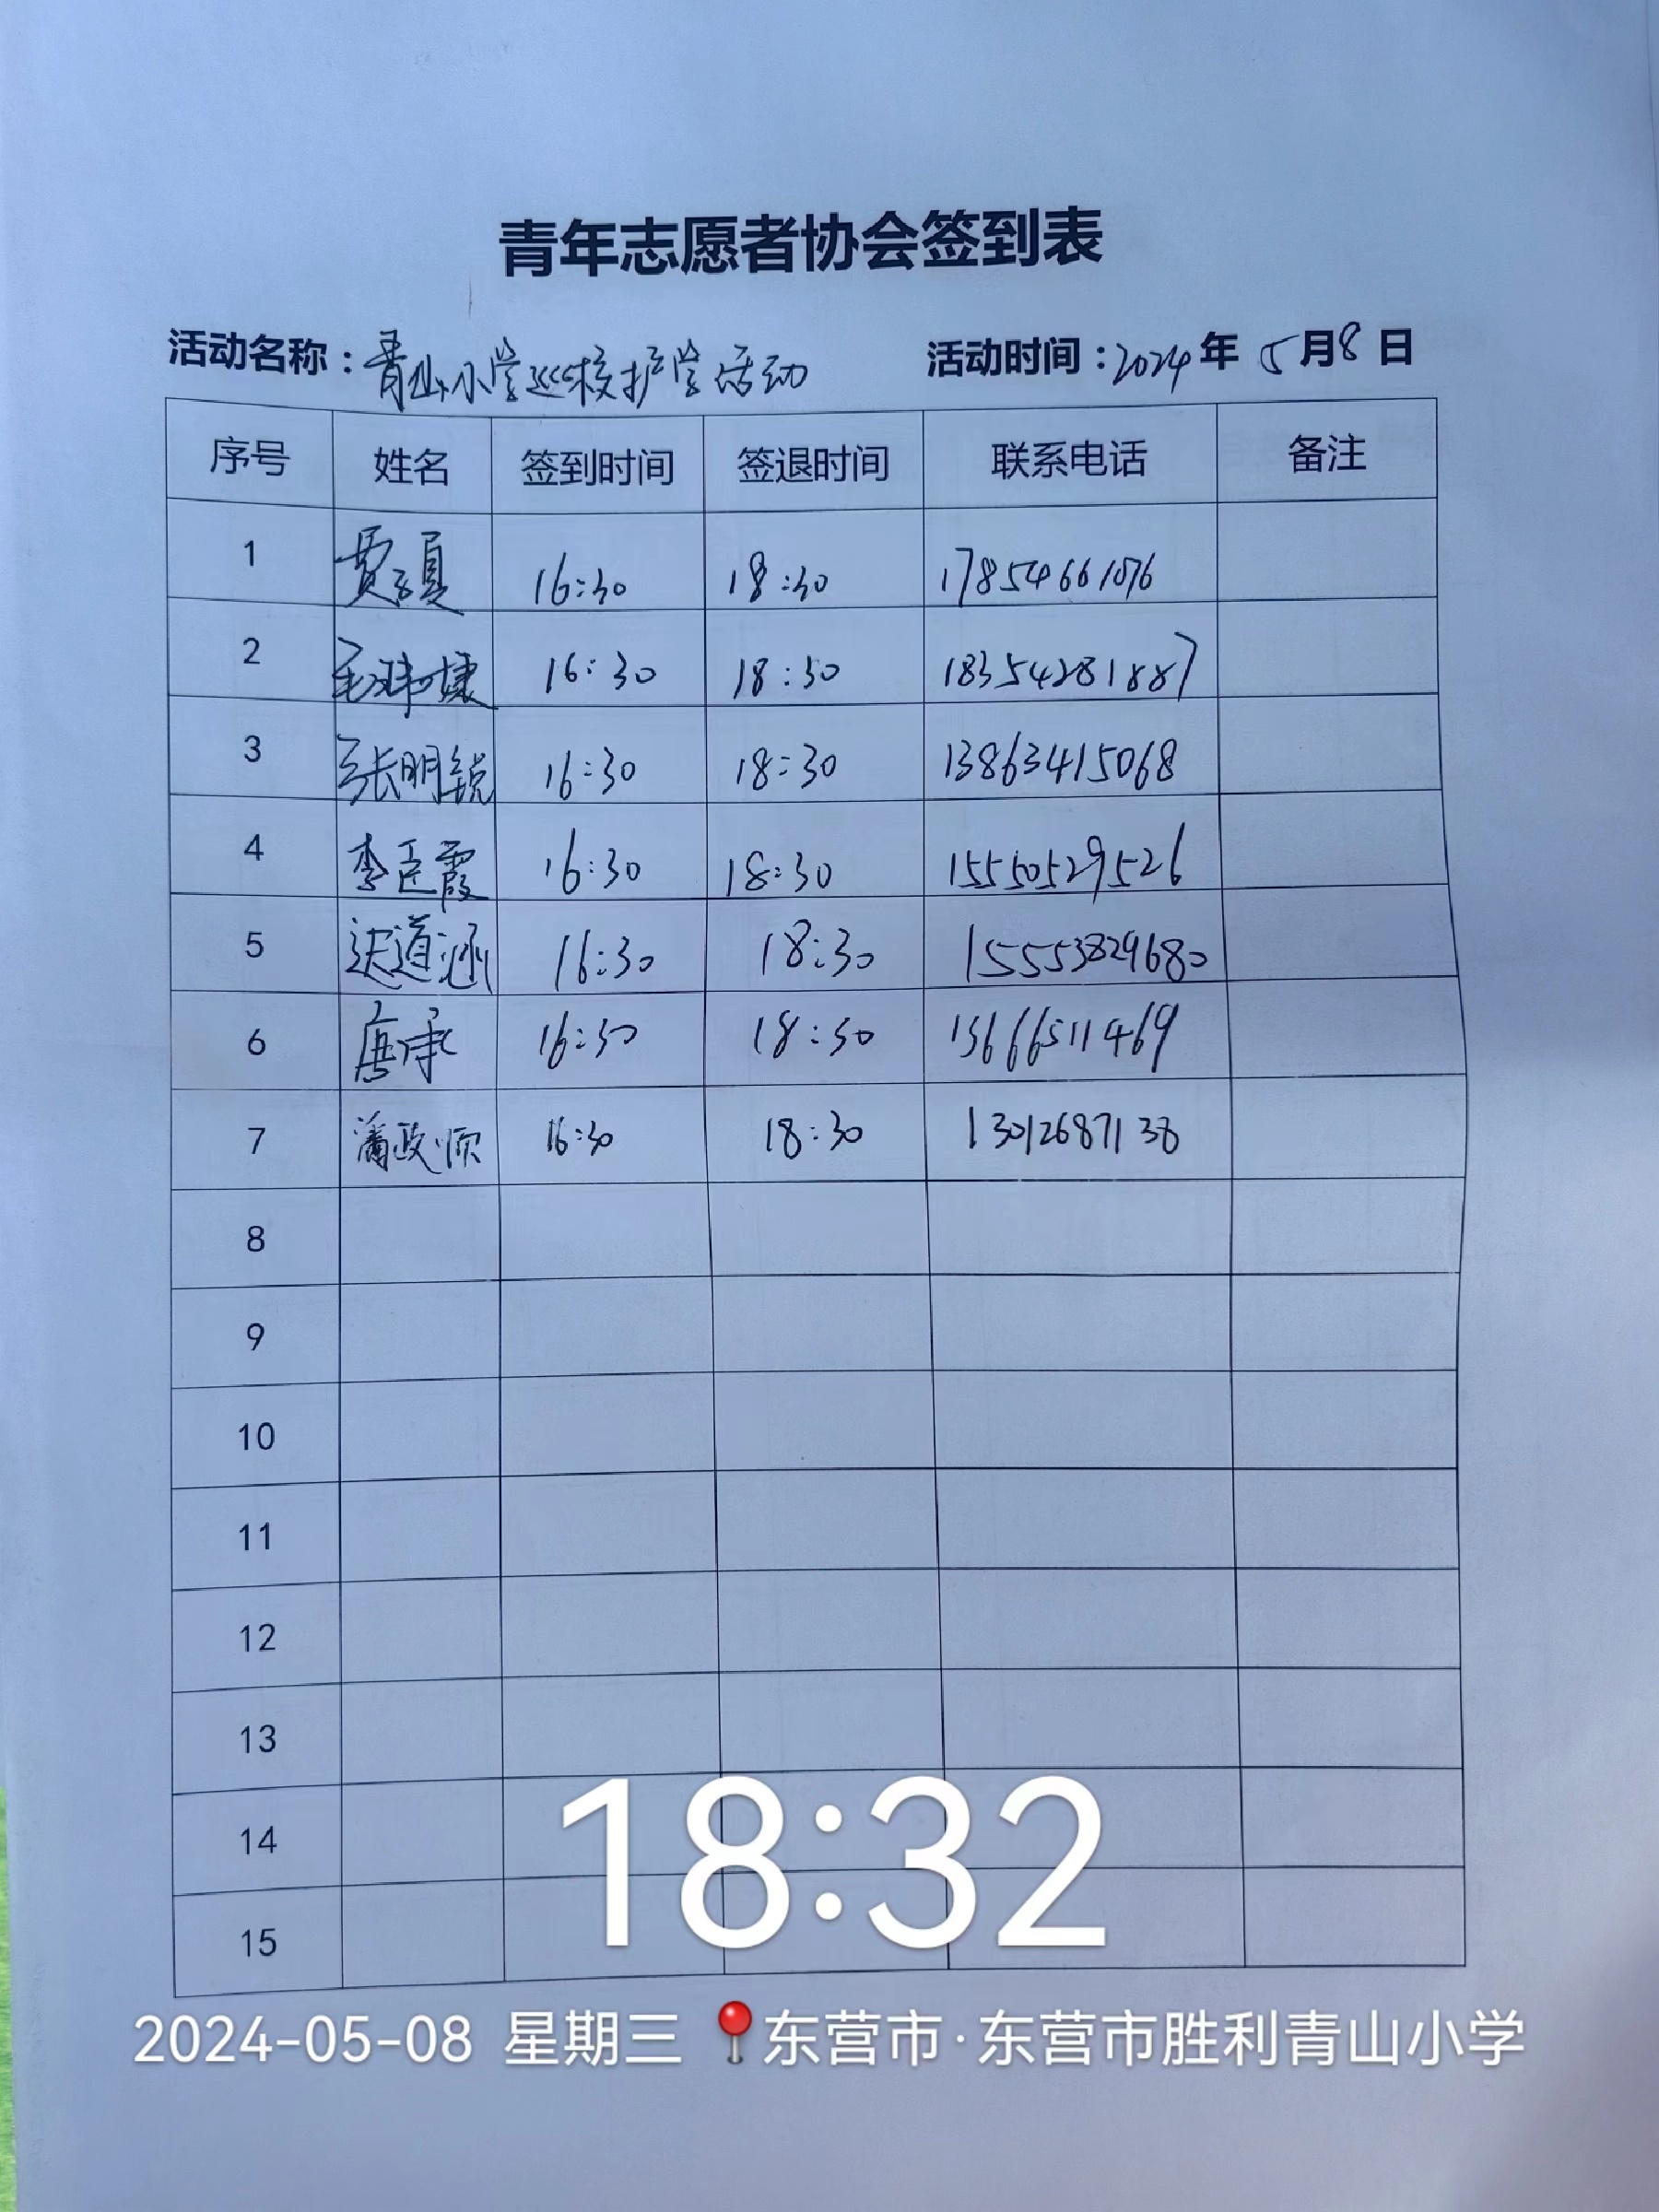 青年志愿者协会签到表
活动名称：青山小学巡校护学活动 活动时间：2024年 5月8日
序号 姓名 签到时间 签退时间 联系电话 备注
1 贾 夏 16:30 18:30 17854661076
2 16:30 18:30 18354281887
3 张明锐 16:30 18:30 13863415068
4 李臣霞 16:30 18:30 15550529526
5 道涵 16:30 18:30 15553829680
6 唐承 16:30 18:30 13666511469
7 潘政顺 16:30 18:30 13012687138
8
9
10
11
12
13
14
15
18:32
2024-05-08 星期三 东营市·东营市胜利青山小学